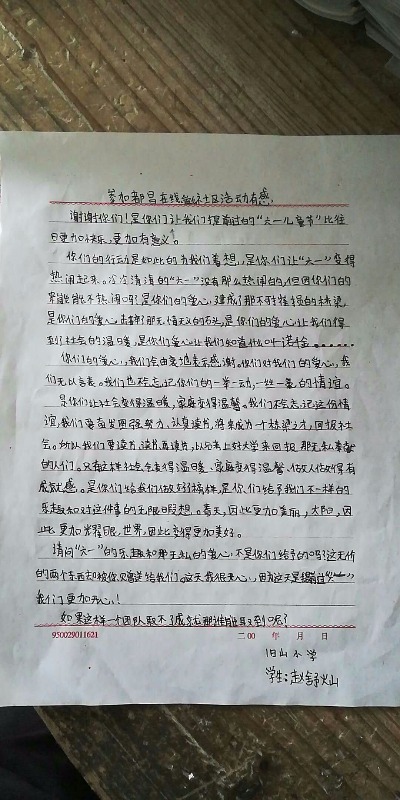 参加都昌在线社区活动有感
谢谢你们!是你们让我们提前过的“六一儿童节”比往
日更加快乐,更加有意义。
你们的行动是如此的为我们着想,是你们让“六一”变得
热闹起来。冷冷清清的“六一”没有那么热闹的,但因你们的
能不热闹吗?是你们的爱心,建成了那不可摧毁的桥梁,
是你们的爱心,击碎了那无情无义的石头,是你们的爱心让我们得
到了社会的温暖,是你们爱心让我们知道什么叶诺金......
你们的爱心,我们会由衷地表示感谢。你们对我们的爱心,我
们无以言表。我们也不会忘记你们的一举一动,一丝一毫的情谊。
是你们让社会变得温暖,家庭变得温馨。我们不会忘记这份情
谊,我们要奋发图强努力,认真读书,将来成为个栋梁之才,回报社
会。所以我们要读书,读书再读书,以后考上好大学来回报那无私奉献
的人们。只有这样社会会变得温暖、家庭变得温馨、做人也如得有
成就感。是你们给我们做好榜样,是你们给予我们不一样的
乐趣和对这件事的无限遐想。春天,因此更加美丽,太阳,因
此更加光耀眼,世界,因此变得更加美好。
请问“六一”的乐趣和那无私的爱心,不是你们给予的吗?这无价
的两个东西却被你们赠送给我们。这天我很开心,因为这天是“六一”
我们更加开心!
如果这样一个团队取不了成就那谁能取到呢?
950029011621 二00 年 月 日
旧山小学
学生:赵灿